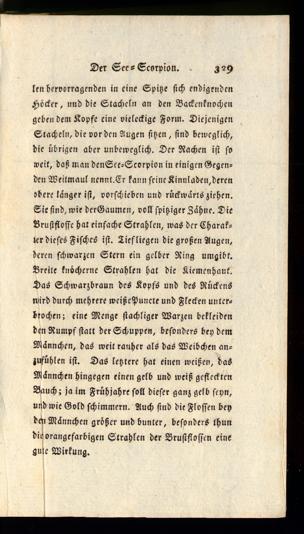 Der See-Scorpion. 329
len hervorragenden in eine Spitze sich endigenden
Höcker, und die Stacheln an den Backenknochen
geben dem Kopfe eine vieleckige Form. Diejenigen
Stacheln, die vor den Augen sitzen, sind beweglich,
die übrigen aber unbeweglich. Der Rachen ist so
weit, daß man den See-Scorpion in einigen Gegen-
den Weitmaul nennt. Er kann seine Kinnladen, deren
obere länger ist, vorschieben und rückwärts ziehen.
Sie sind, wie der Gaumen, voll spitziger Zähne. Die
Brustflosse hat einfache Strahlen, was der Charak-
ter dieses Fisches ist. Tief liegen die großen Augen,
deren schwarzen Stern ein gelber Ring umgibt.
Breite knöcherne Strahlen hat die Kiemenhaut.
Das Schwarzbraun des Kopfs und des Rückens
wird durch mehrere weiße Puncte und Flecken unter-
brochen; eine Menge stachliger Warzen bekleiden
den Rumpf statt der Schuppen, besonders bey dem
Männchen, das weit rauher als das Weibchen an-
zufühlen ist. Das letztere hat einen weißen, das
Männchen hingegen einen gelb und weiß gefleckten
Bauch; ja im Frühjahre soll dieser ganz gelb seyn,
und wie Gold schimmern. Auch sind die Flossen bey
den Männchen größer und bunter, besonders thun
die orangefarbigen Strahlen der Brustflossen eine
gute Wirkung.